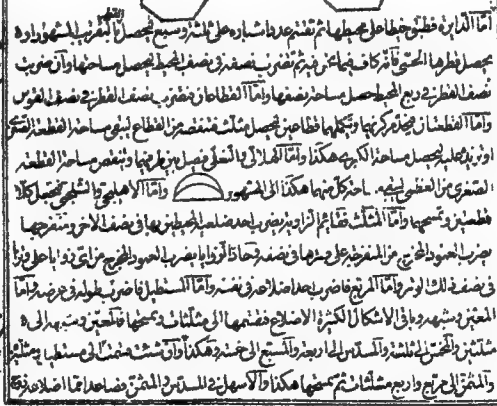 امّا الدايرة فطبق خيطا على محيطها ثم تقسم عددها شباره على ثلثة وسبع ليحصل بالتقريب المشهور او
يحصل قطرها الحسى فانه كاف فيما نحن فيه ثم تضرب نصفه فى نصف المحيط ليحصل مساحتها وان ضرب
نصف القطر فى ربع المحيط حصل مساحة نصفها وامّا القطاعان فتضرب نصف القطر فى نصف القوس
وامّا القطعتان فتعلم مركزيهما وتكملهما قطاعين ليحصل مثلث فتنقصه من القطاع ليبقى مساحة القطعة الصغرى
او تزيد عليه ليحصل مساحة الكبرى هكذا وامّا الهلالى والنعلى فيصل بين طرفيهما وتنقص مساحة القطعة
الصغرى من العظمى ليبقى مساحة كل منهما هكذا الى المشهور وامّا الاهليلجى والشلجمى فتحصل كلا
قطعتين وتمسحهما وامّا المثلث فقائم الزاوية يضرب احد ضلعيه المحيطين بها فى نصف الاخر ومنفرجها
يضرب العمود المخرج من المنفرجة على وترها فى نصفه وحاد الزوايا يضرب العمود المخرج من اى زواياه على وترها
فى نصف ذلك الوتر وامّا المربع فاضرب احد اضلاعه فى نفسه وامّا المستطيل فاضرب طوله فى عرضه وامّا
المعين وشبهه وباقى الاشكال الكثيرة الاضلاع فقسمها الى مثلثات وتمسحها فالمعين وشبهه الى
مثلثين والمخمس الى ثلثة والمسدس الى اربعة والمسبع الى خمسة وهكذا وان شئت قسمت الى مستطيل ومثلثين
والمثمن الى مربع واربع مثلثات ثم تمسحها هكذا والاسهل فى المسدس والمثمن فصاعدا مما اضلاعه زوج